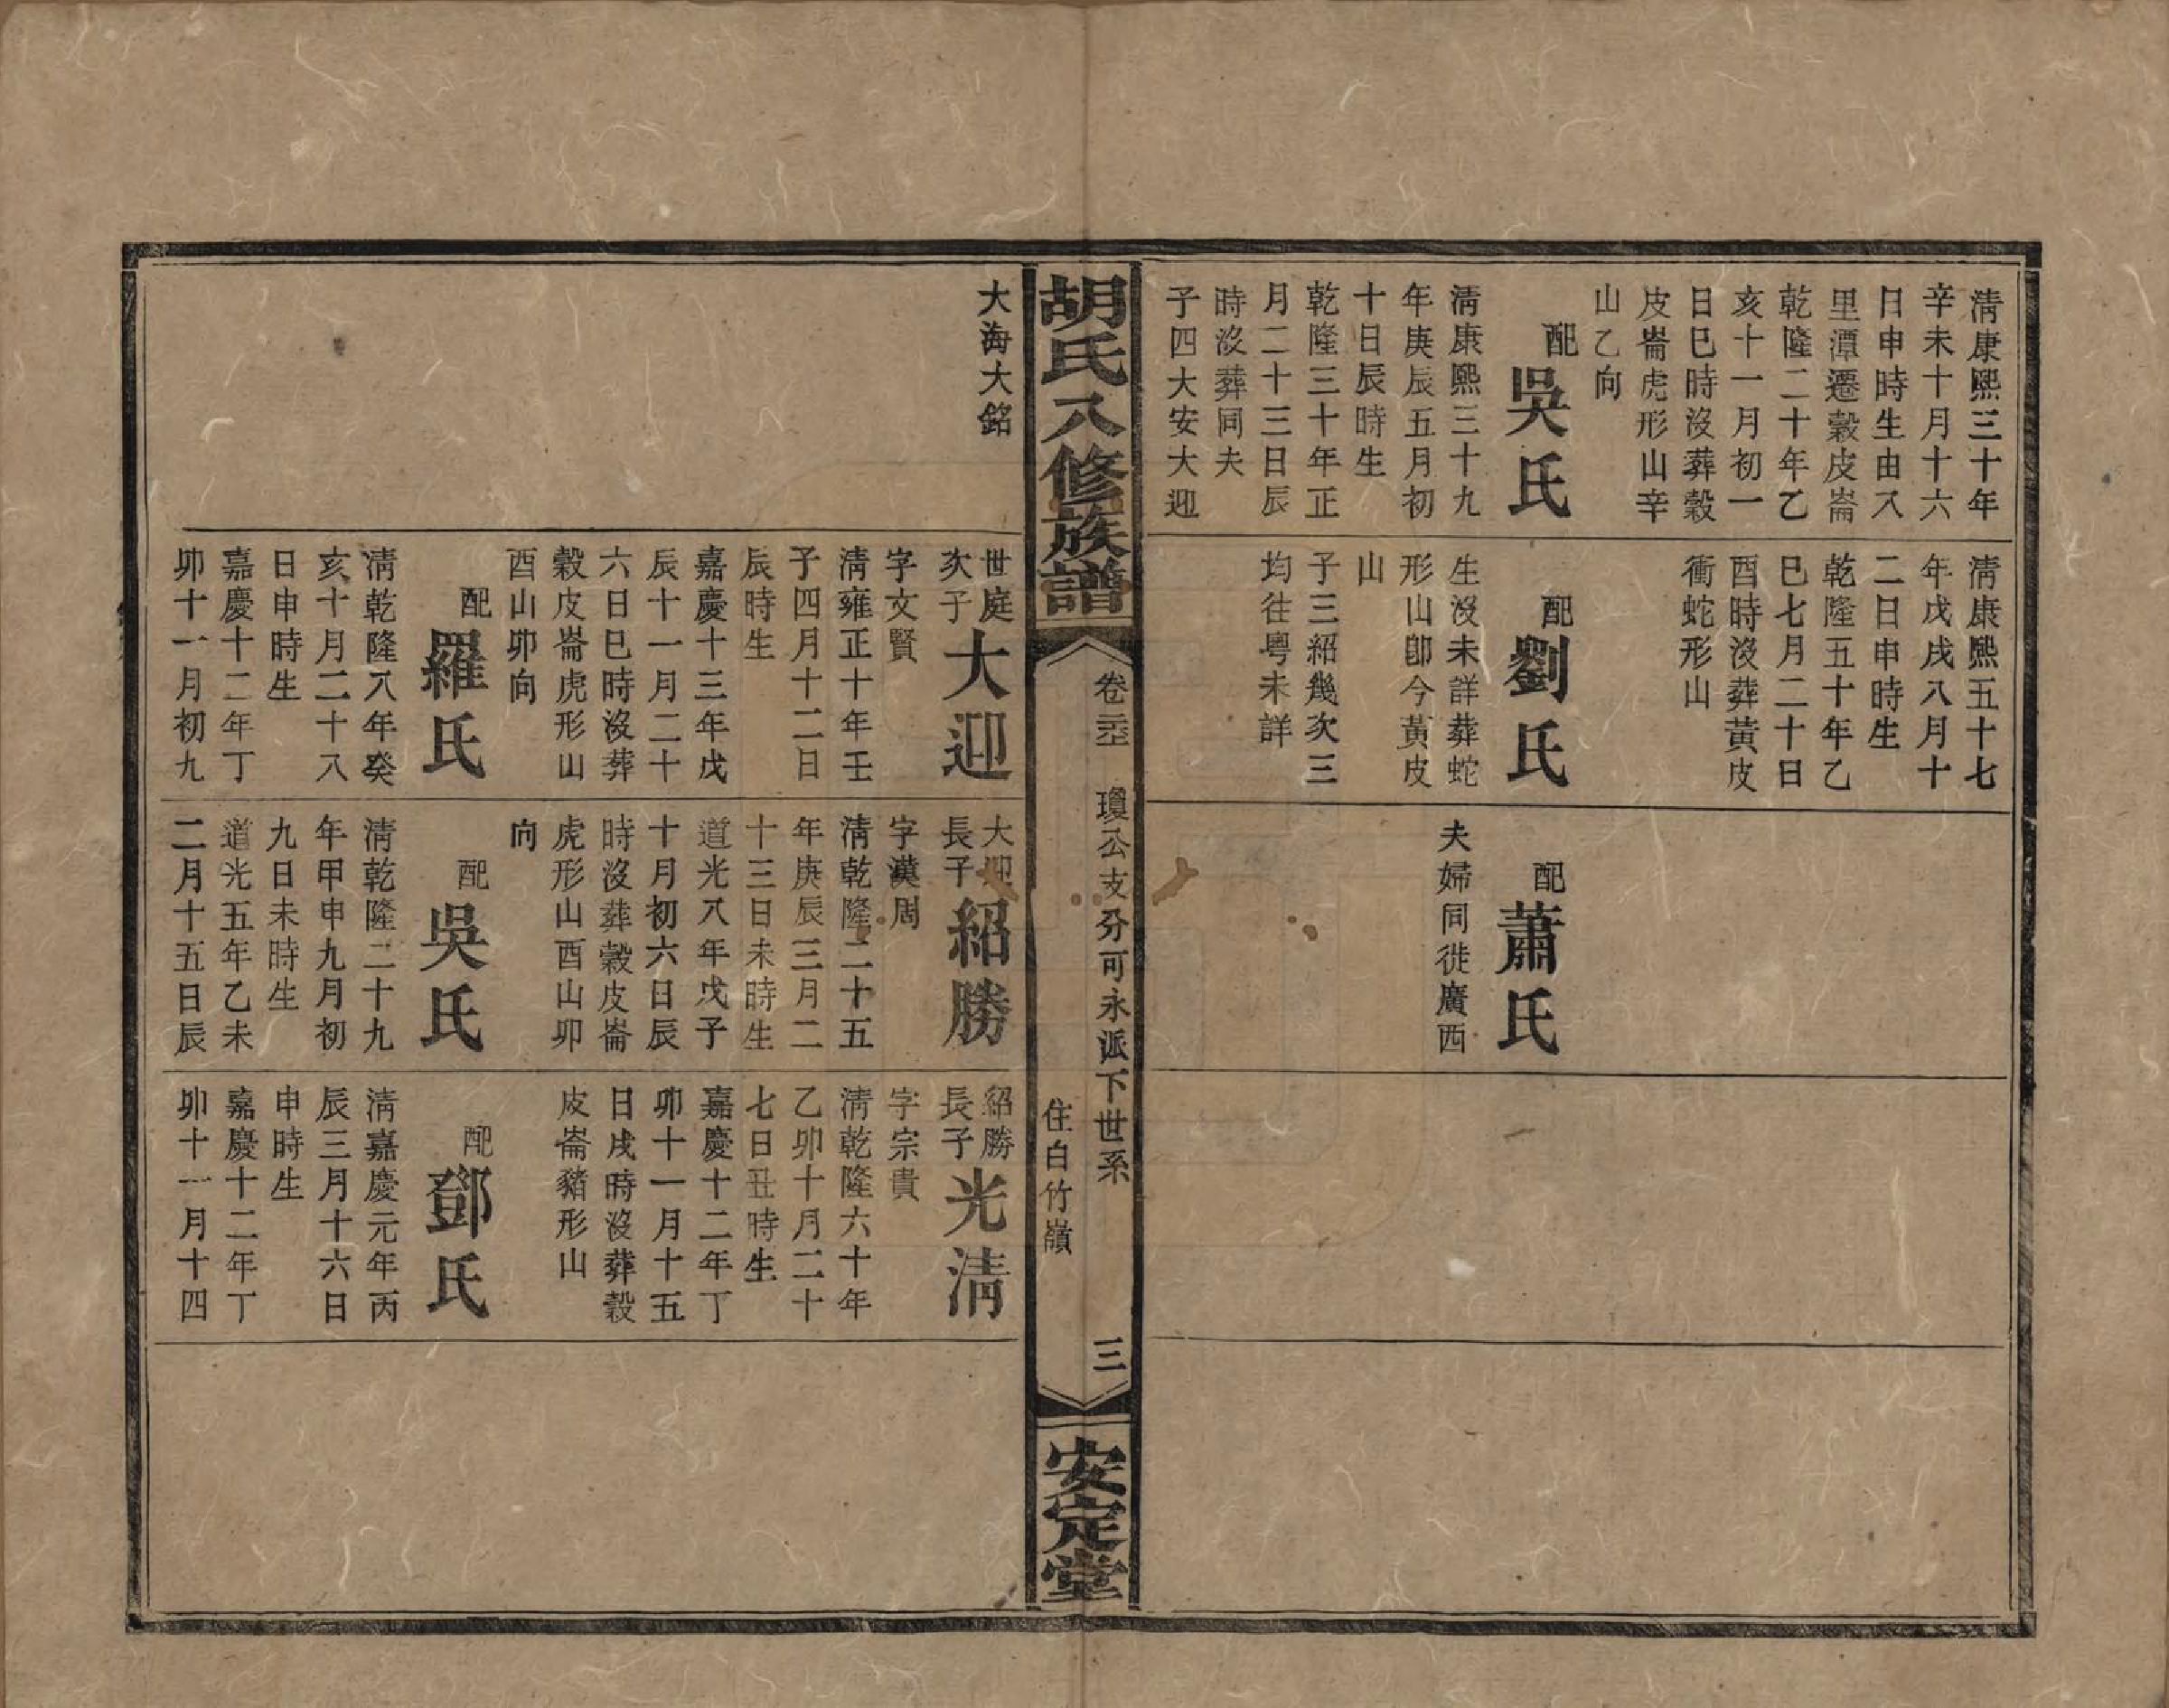 清康熙三十年
辛未十月十六
日申時生由入
里潭遷穀皮崙
乾隆二十年乙
亥十一月初一
日巳時沒葬穀
皮崙虎形山辛
山乙向
配吳氏
清康熙三十九
年庚辰五月初
十日辰時生
乾隆三十年正
月二十三日辰
時沒葬同夫
子四大安大迎
清康熙五十七
年戊戌八月十
二日申時生
乾隆五十年乙
巳七月二十日
酉時沒葬黃皮
衝蛇形山
配劉氏
生沒未詳葬蛇
形山卽今黃皮
山
子三紹幾次三
均往粵未詳
配蕭氏
夫婦同徙廣西
胡氏八修族譜
卷
瓊公支分可永派下世系
住白竹嶺
三
安定堂
大海大銘
世庭
次子
大迎
字文賢
清雍正十年壬
子四月十二日
辰時生
嘉慶十三年戊
辰十一月二十
六日巳時沒葬
穀皮崙虎形山
酉山卯向
配羅氏
清乾隆八年癸
亥十月二十八
日申時生
嘉慶十二年丁
卯十一月初九
大迎
長子
紹勝
字漢周
清乾隆二十五
年庚辰三月二
十三日未時生
道光八年戊子
十月初六日辰
時沒葬穀皮崙
虎形山酉山卯
向
配吳氏
清乾隆二十九
年甲申九月初
九日未時生
道光五年乙未
二月十五日辰
紹勝
長子
光清
字宗貴
清乾隆六十年
乙卯十月二十
七日丑時生
嘉慶十二年丁
卯十一月十五
日戌時沒葬穀
皮崙豬形山
配鄧氏
清嘉慶元年丙
辰三月十六日
申時生
嘉慶十二年丁
卯十一月十四